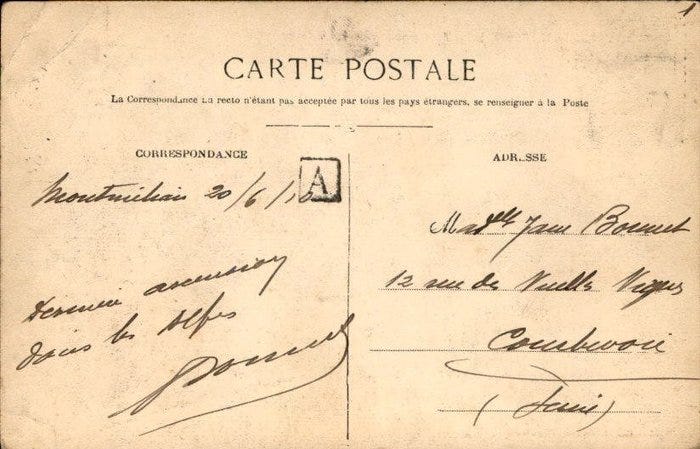 1
CARTE POSTALE
La Correspondance au recto n'étant pas acceptée par tous les pays étrangers, se renseigner à la Poste
CORRESPONDANCE
ADRESSE
A
Montmélian 20/6/10
Dernière ascension
dans les Alpes
Bonnet
Madelle Jane Bonnet
12 rue des Vieilles Vignes
Courbevoie
(Seine)